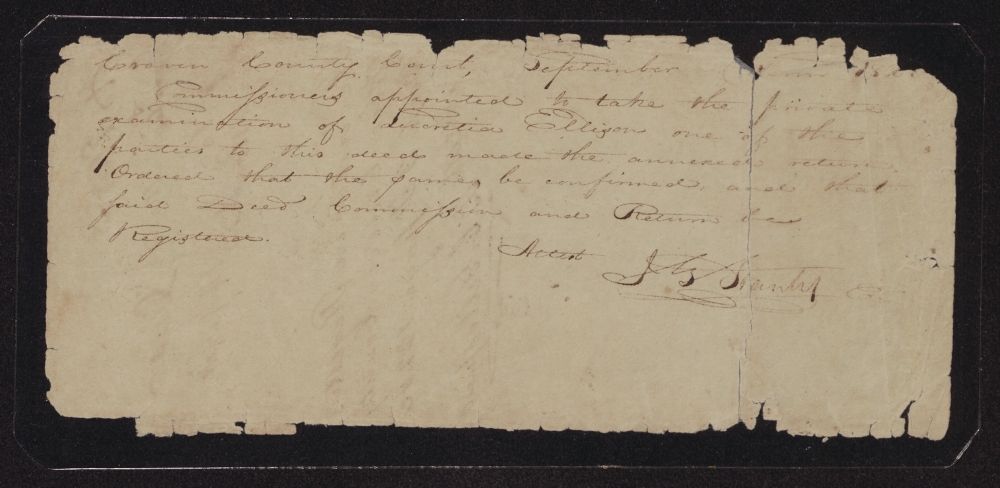 Craven County Court, September
Commissioners appointed to take the private
examination of Lucretia Ellison one of the
parties to this deed made the annexed return
Ordered that the same be confirmed, and that
said Deed Commission and Return be
Registered.
Attest J G Stanly